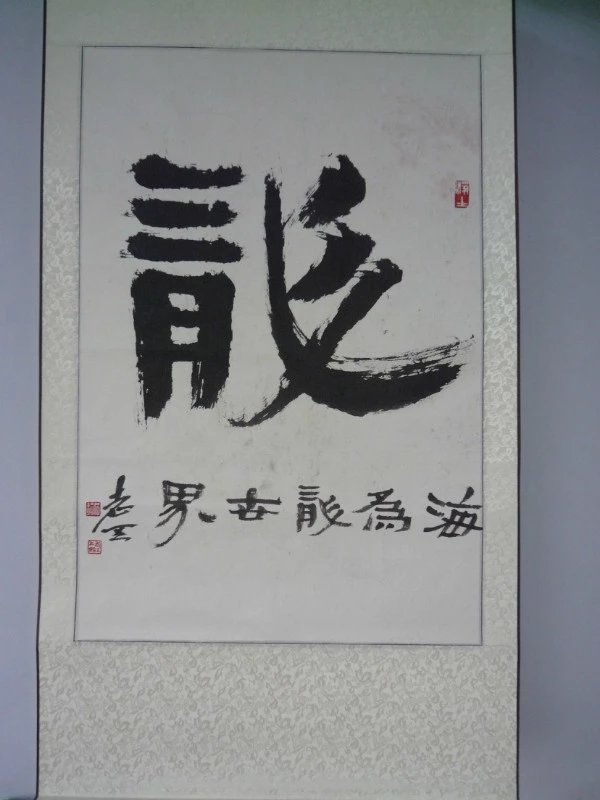 龍
海為龍世界